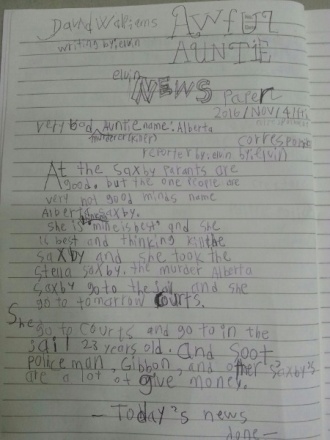 David Walliams
AWFUL
AUNTIE
writing by: elvin
elvin
NEWS
Paper
2016/NOV/4/Fri
very bad Auntie name: Alberta
correspon
reporter by: elvin
At the saxby parants are
good. but the one people are
very not good minds name
Alberta saxby.
she is mine is best and she
is best and thinking kill the
saxby and she took the
Stella saxby. the murder Alberta
saxby go to the jail and she
go to tomorrow courts.
She
go to courts and go to in the
jail 23 years old. And Soot
policeman, Gibbon, and other saxby's
are a lot of give money.
— Today's news
done —